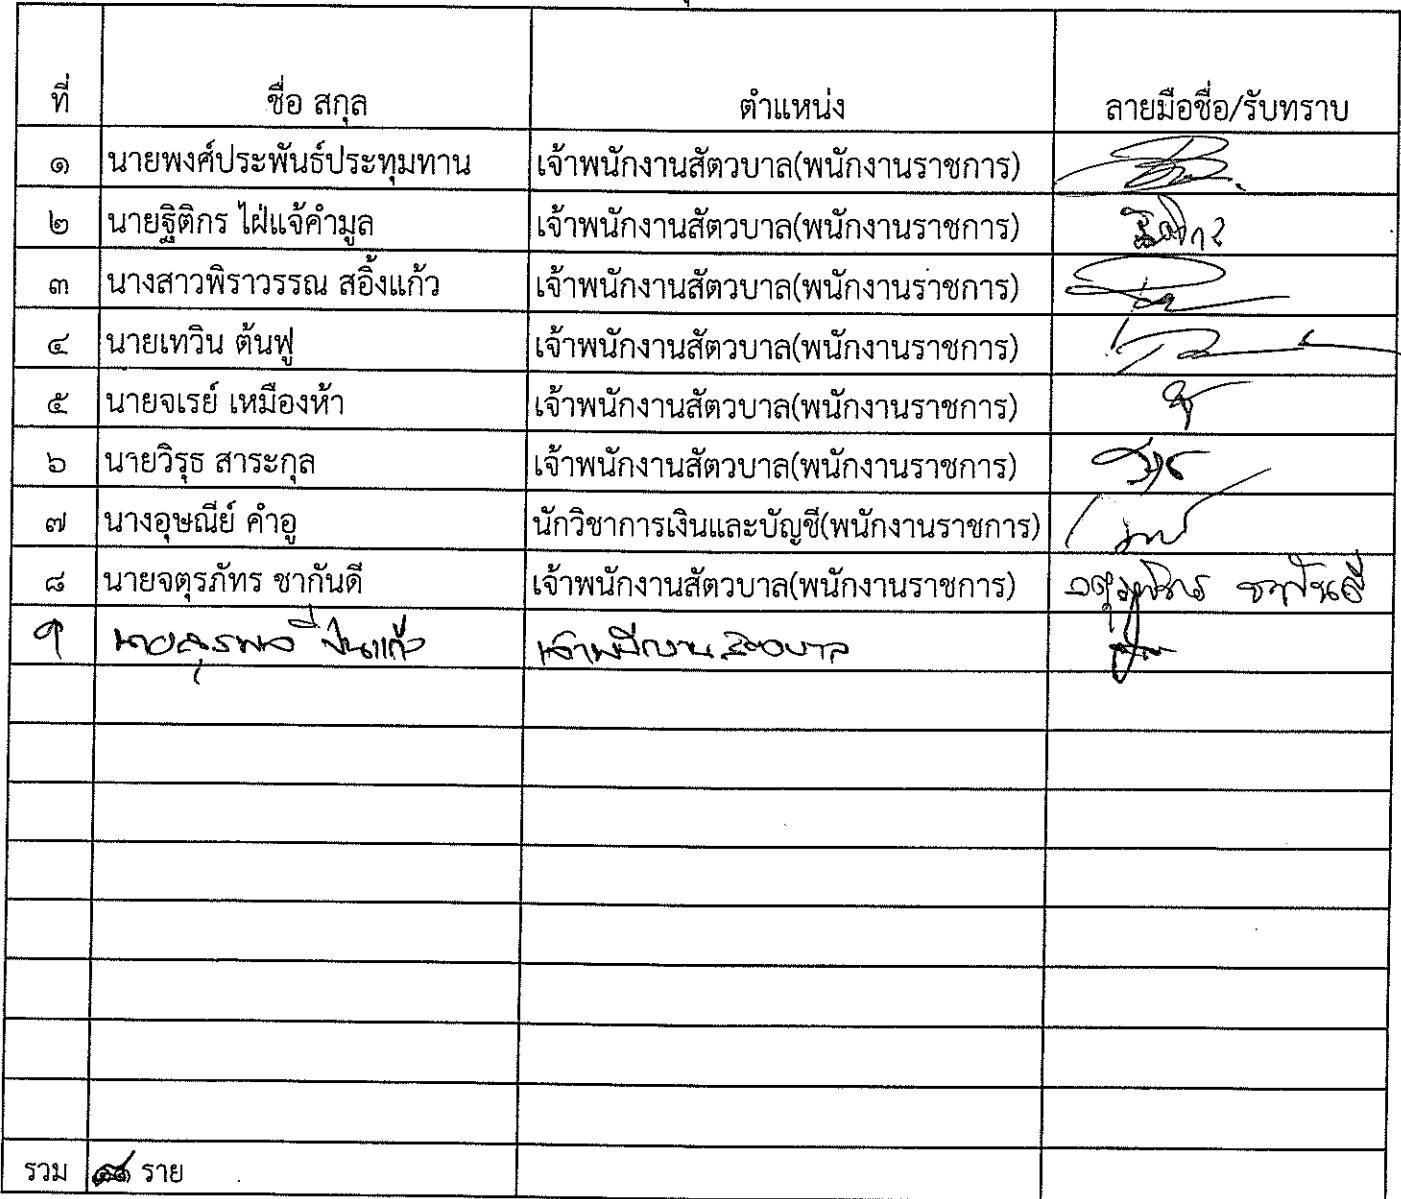 ที่ ชื่อ สกุล ตำแหน่ง ลายมือชื่อ/รับทราบ
๑ นายพงศ์ประพันธ์ประทุมทาน เจ้าพนักงานสัตวบาล(พนักงานราชการ)
๒ นายฐิติกร ไฝ่แจ้คำมูล เจ้าพนักงานสัตวบาล(พนักงานราชการ) ฐิติกร
๓ นางสาวพิราวรรณ สอิ้งแก้ว เจ้าพนักงานสัตวบาล(พนักงานราชการ)
๔ นายเทวิน ต้นฟู เจ้าพนักงานสัตวบาล(พนักงานราชการ)
๕ นายจเรย์ เหมืองห้า เจ้าพนักงานสัตวบาล(พนักงานราชการ)
๖ นายวิรุธ สาระกุล เจ้าพนักงานสัตวบาล(พนักงานราชการ)
๗ นางอุษณีย์ คำอู นักวิชาการเงินและบัญชี(พนักงานราชการ)
๘ นายจตุรภัทร ชากันดี เจ้าพนักงานสัตวบาล(พนักงานราชการ) จตุรภัทร ชากันดี
๙ นายสุรพล ปินแก้ว เจ้าพนักงานสัตวบาล
รวม ราย